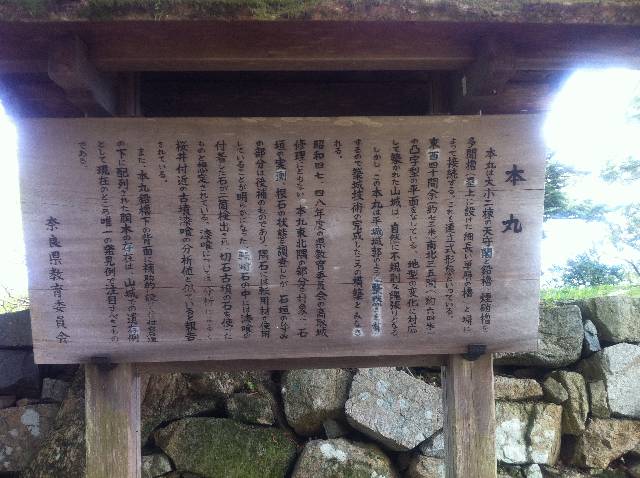 本丸
本丸は大小二棟の天守閣と鉛櫓 煙硝櫓を
多聞櫓(塁上に設けた細長い単層の櫓)と塀に
よって接続する。これを連立式形態といっている。
東西四十間余(約七六米)南北三五間(約六四米)
の凸字型の平面をなしている。地型の変化に対応
して築かれた山城は、自然に不規則な縄張りとなる。
しかし、この本丸は平城城郭のような整然さを有
するので築城技術の完成したころの構築とみなさ
れる。
昭和四七、四八年度の県教育委員会の高取城
修理にともない、本丸東北隅の部分を対象に、石
垣の実測、根石の状態を調査したが、石垣の積み
の部分は後補のものであり、隅石には転用材を使用
していることが明らかになった。転用石の中には漆喰の
付着した石が二箇検出され、切石古墳の石を使った
ものと想定されていた。漆喰について分析
桜井付近の古墳漆喰の分析値と似ていると報告
されている。
また、本丸鉛櫓下の背面に補助的
の下に配列された胴木の存在は、山城
として現在のところ唯一の発見例で注目すべきもの
である。
奈良県教育委員会